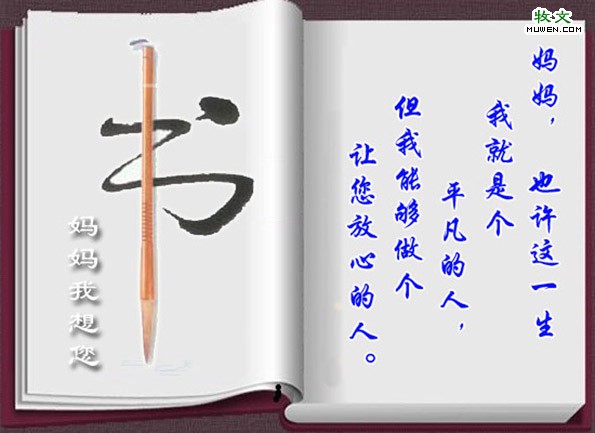 书
妈妈我想您
妈妈，也许这一生
我就是个
平凡的人，
但我能够做个
让您放心的人。
牧文
MUWEN.COM